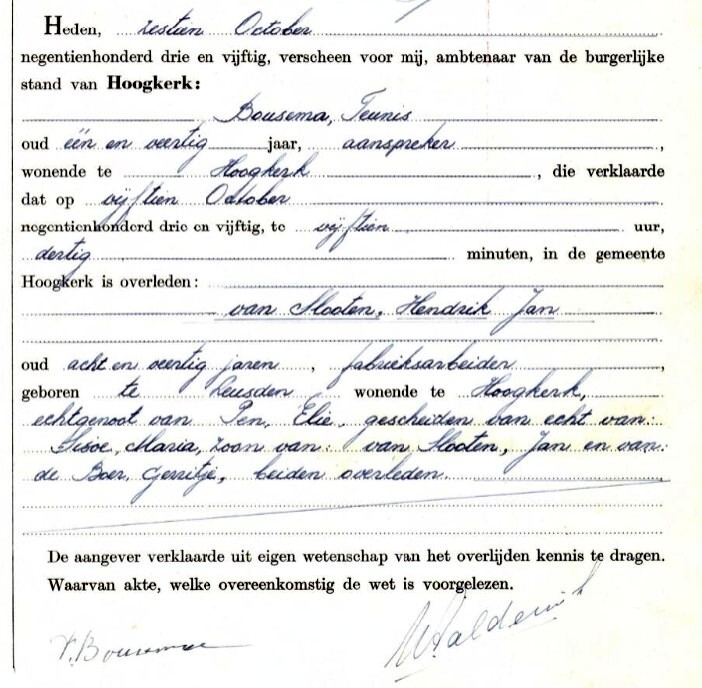 Heden, zestien October
negentienhonderd drie en vijftig, verscheen voor mij, ambtenaar van de burgerlijke
stand van Hoogkerk:
Bousema, Teunis
oud één en veertig jaar, aanspreker ,
wonende te Hoogkerk , die verklaarde
dat op vijftien October
negentienhonderd drie en vijftig, te vijftien uur,
dertig minuten, in de gemeente
Hoogkerk is overleden:
van Slooten, Hendrik Jan
oud acht en veertig jaren , fabrieksarbeider ,
geboren te Leusden wonende te Hoogkerk,
echtgenoot van Pen, Elie, gescheiden van echt van:
Maria, zoon van: van Slooten, Jan en van:
de Boer, Gerritje, beiden overleden.
De aangever verklaarde uit eigen wetenschap van het overlijden kennis te dragen.
Waarvan akte, welke overeenkomstig de wet is voorgelezen.
T. Bousema